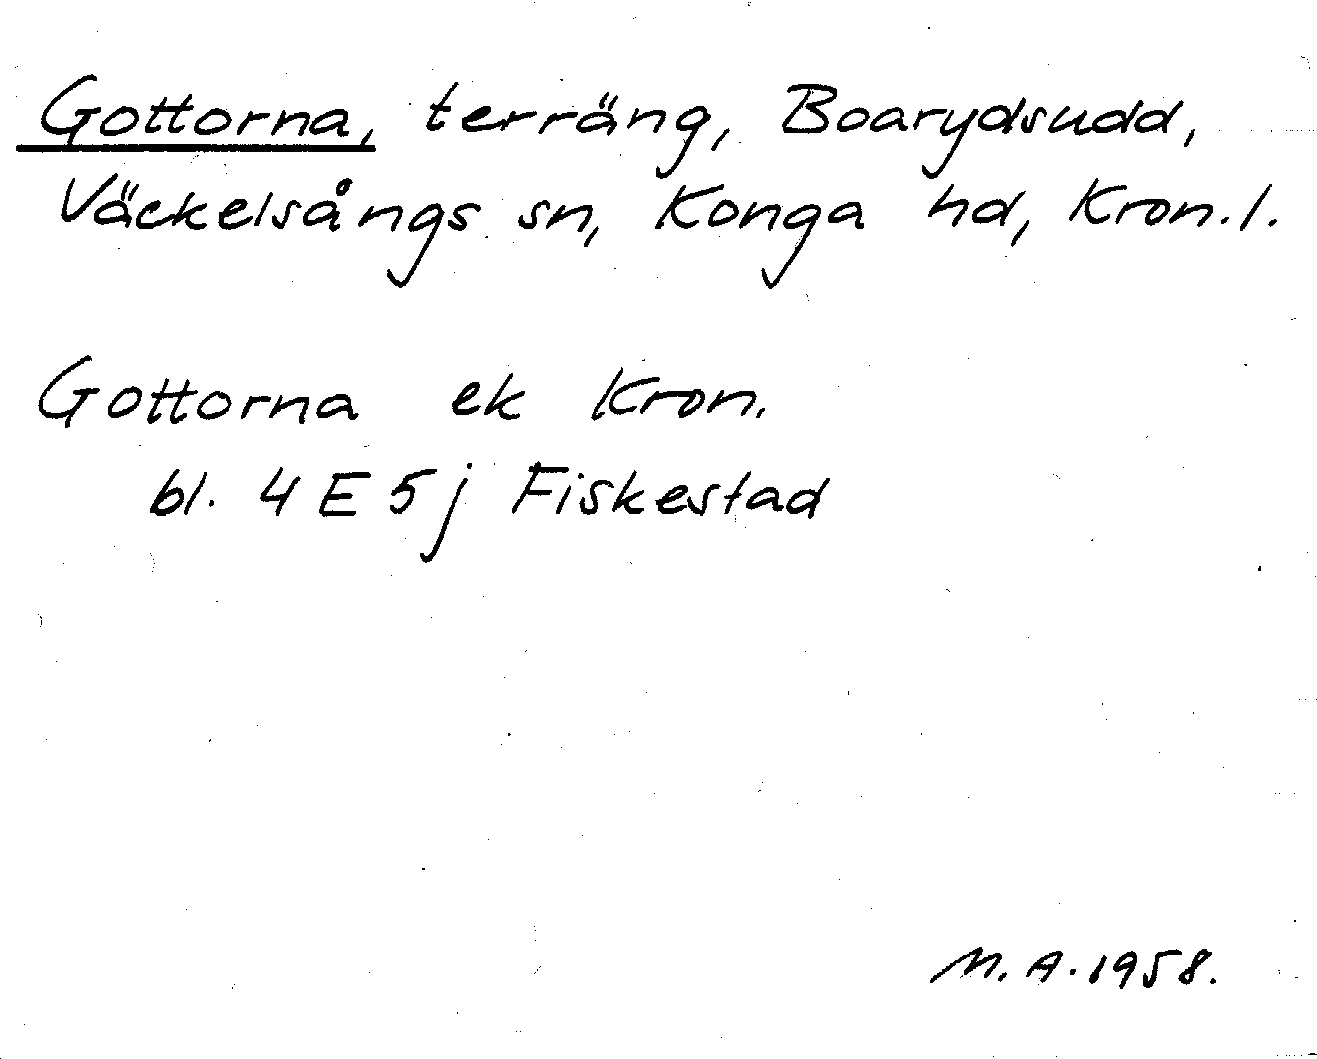 Gottorna, terräng, Boarydsudd,
Väckelsångs sn, Konga hd, Kron. l.
Gottorna ek Kron.
bl. 4 E 5j Fiskestad
M. A. 1958.